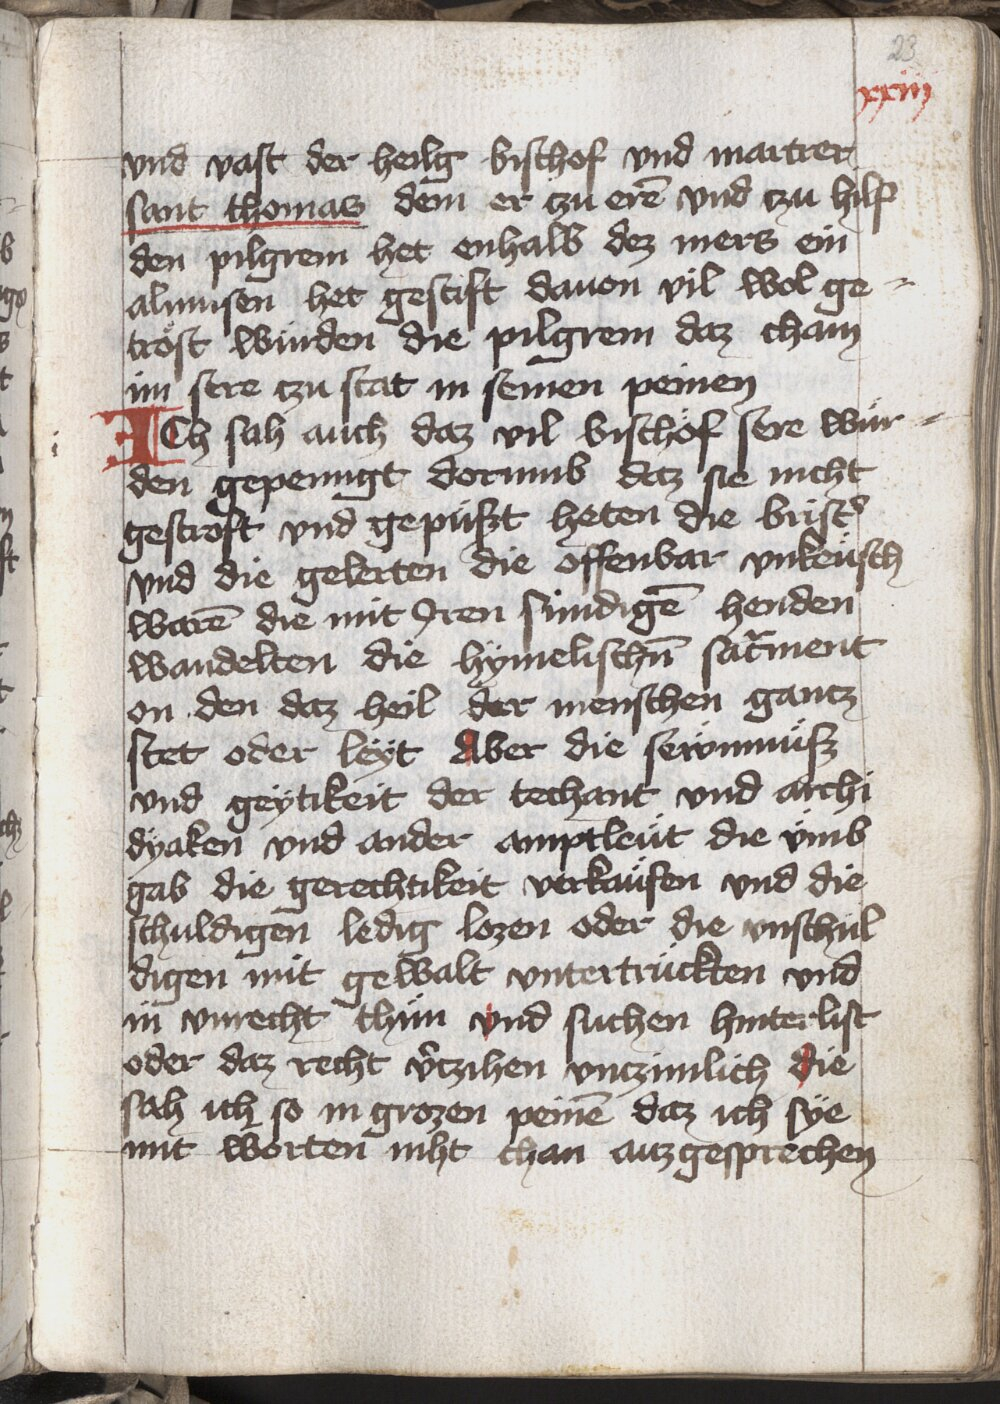 23
xxiij
vnd vast der heilg bischof vnd martrer
sant thomas dem er czu erē vnd czu hilf
den pilgrem het enhalb dez mers ein
almusen het gestift dauon vil wol ge=
tröst würden die pilgrem daz cham
im sere czu stat in seinen peinen
ICh sah auch daz vil bischöf sere wür=
den gepeinigt dorumb daz sie nicht
gestroft vnd gepüßt heten die brist'
vnd die gelerten die offenbar vnkeüsch
warē die mit Iren sündigē henden
wandelten die hÿmelischn̄ sac̄ment
on den daz heil der menschen gantz
stet oder leÿt Aber die sewmnüsz
vnd geÿtikeit der techant vnd archi
dÿaken vnd ander amptleüt die vmb
gab die gerechtikeit verkaüfen vnd die
schuldigen ledig lozen oder die vnschul
digen mit gewalt vntertrückten vnd
in vnrecht thün vnd suchen hinterlist
oder daz recht v'tzihen vnczimlich die
sah ich so in grozen peinē daz ich sÿe
mit worten niht chan auzgesprechen
i